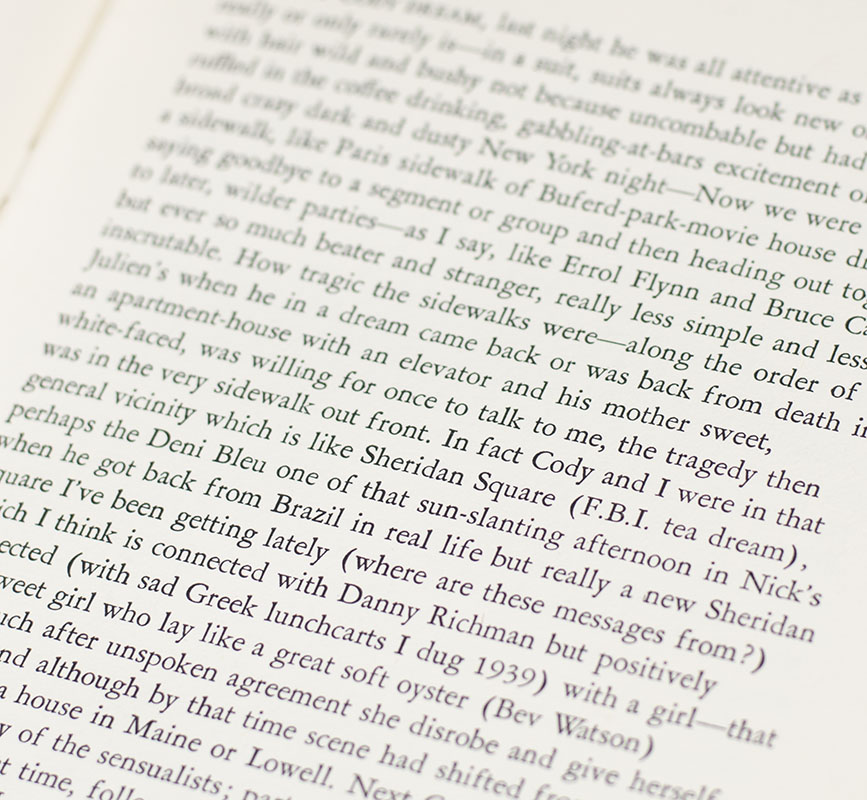 DREAM, last night he was all attentive as
really or only rarely is—in a suit, suits always look new
with hair wild and bushy not because uncombable but had
ruffled in the coffee drinking, gabbling-at-bars excitement
broad crazy dark and dusty New York night—Now we were
a sidewalk, like Paris sidewalk of Buferd-park-movie house
saying goodbye to a segment or group and then heading out tog
to later, wilder parties—as I say, like Errol Flynn and Bruce Ca
but ever so much beater and stranger, really less simple and less
inscrutable. How tragic the sidewalks were—along the order of
Julien's when he in a dream came back or was back from death in
an apartment-house with an elevator and his mother sweet,
white-faced, was willing for once to talk to me, the tragedy then
was in the very sidewalk out front. In fact Cody and I were in that
general vicinity which is like Sheridan Square (F.B.I. tea dream),
perhaps the Deni Bleu one of that sun-slanting afternoon in Nick's
when he got back from Brazil in real life but really a new Sheridan
quare I've been getting lately (where are these messages from?)
ich I think is connected with Danny Richman but positively
ected (with sad Greek lunchcarts I dug 1939) with a girl—that
weet girl who lay like a great soft oyster (Bev Watson)
uch after unspoken agreement she disrobe and give herself
nd although by that time scene had shifted fro
a house in Maine or Lowell. Next
y of the sensualists;
t time, follo